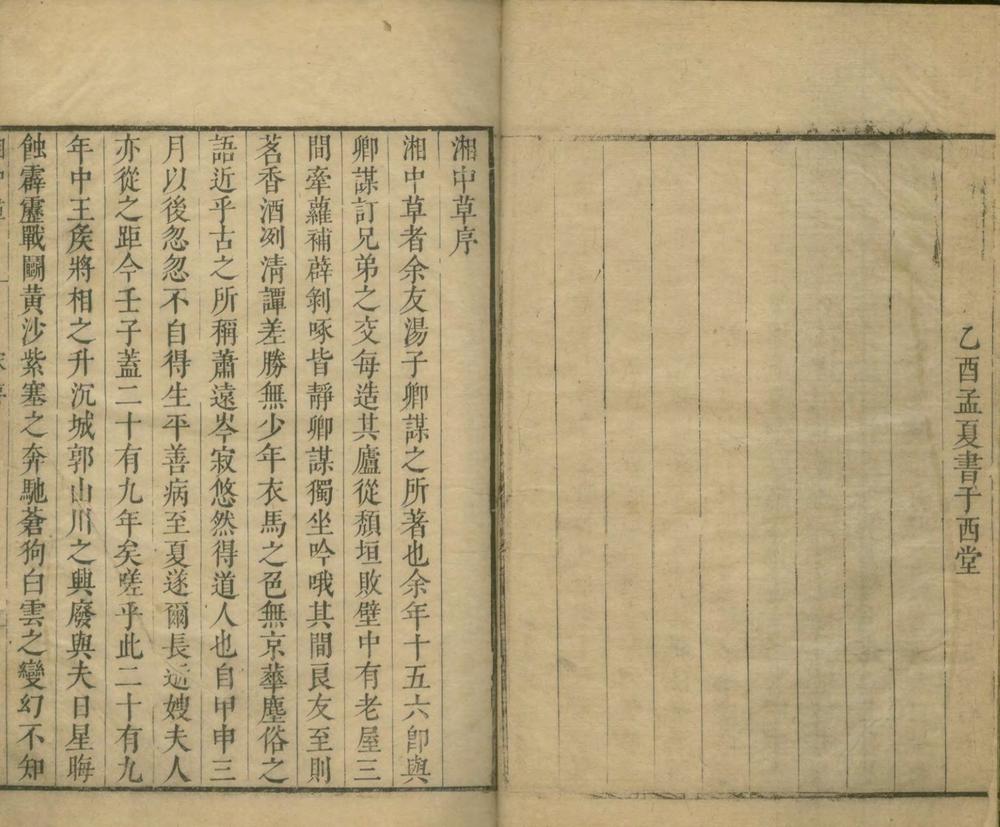 乙酉孟夏書于西堂
湘中草序
湘中草者余友湯子卿謀之所著也余年十五六卽與
卿謀訂兄弟之交每造其廬從頹垣敗壁中有老屋三
間牽蘿補薜剝啄皆靜卿謀獨坐吟哦其間良友至則
茗香酒冽清譚差勝無少年衣馬之色無京華塵俗之
語近乎古之所稱蕭遠岑寂悠然得道人也自甲申三
月以後忽忽不自得生平善病至夏遂爾長逝嫂夫人
亦從之距今壬子蓋二十有九年矣嗟乎此二十有九
年中王矦將相之升沉城郭山川之興廢與夫日星晦
蝕霹靂戰鬭黃沙紫塞之奔馳蒼狗白雲之變幻不知